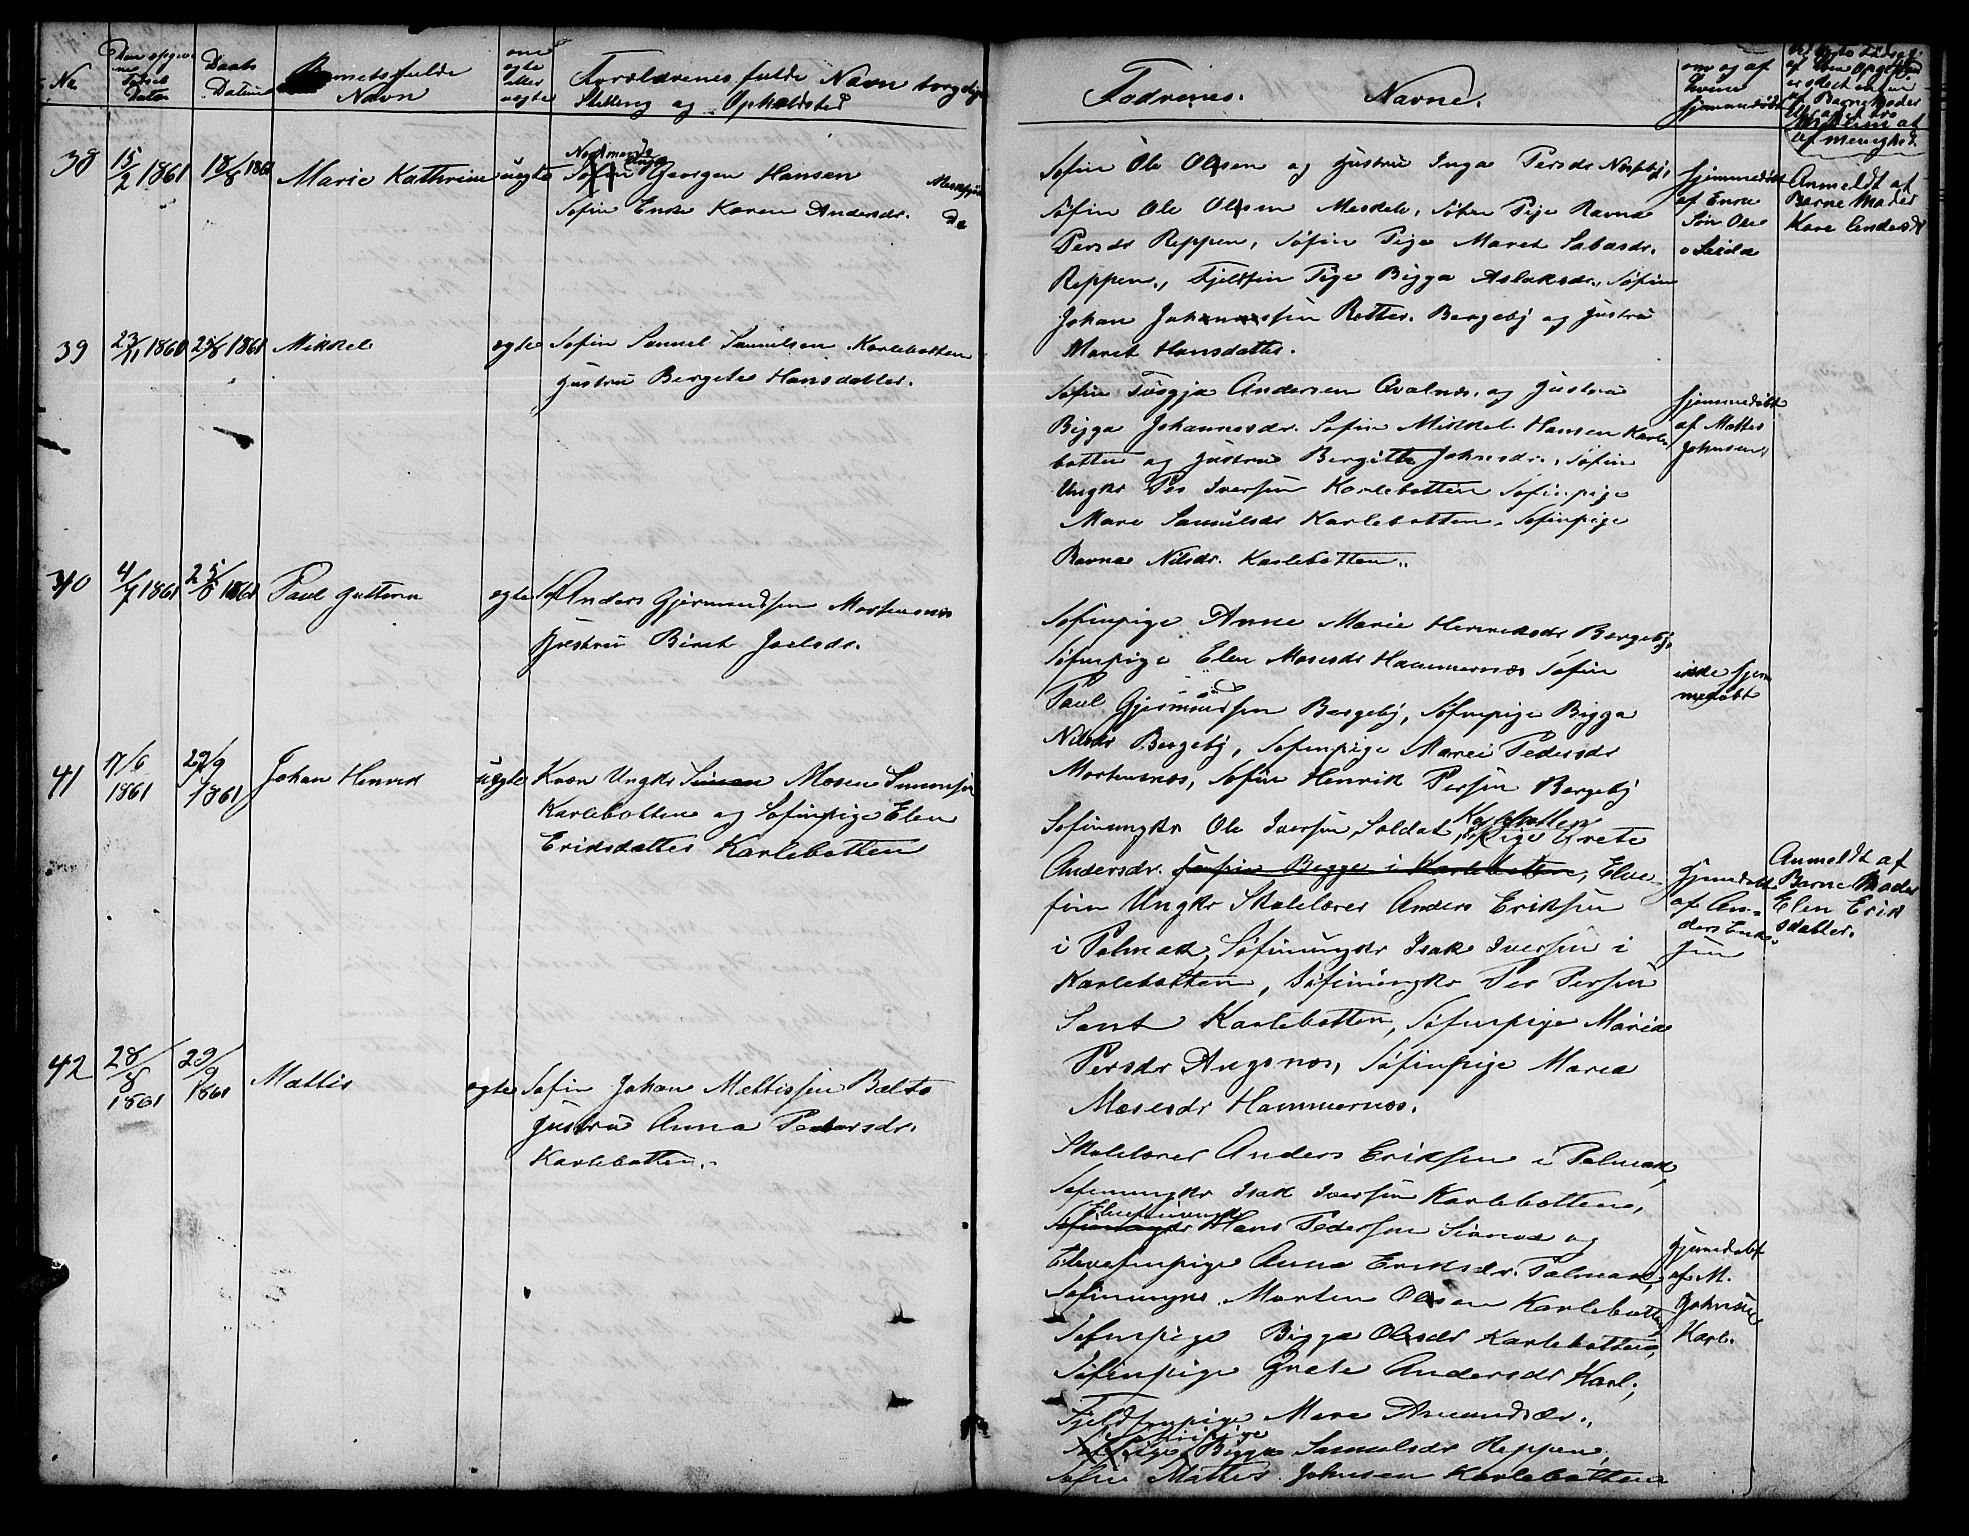 No
Den opgivne
Fødsels
Datum
Daabs
Datum
Barnets fulde
Navn
om
ægte
eller
uægte
Forældrenes fulde Navn
Stilling og Opholdsted
Faddrenes. Navne.
om og af
hvem
hjemmedøbt
38 15/2 1861 18/8 1861 Marie Kathrine uægte
Nordmands
Ungkr
Georgen Hansen
Søfin Enke Karen Andersdr. Do
Søfin Ole Olsen og Hustru Inga Persdr
Søfin Ole Olsen Meskelv, Søfin Pige Ravna
Persdr Reppen, Søfin Pige Maret Sabasdr.
Reppen, Fjeldfin Pige Bigga Aslaksdr., Søfin
Johan Johannessen Rotter. Bergeby og Hustru
Maret Hansdatter.
hjemmedøbt
af Enon
Søn Ole
Anmeldt af
Barne Moder
Kare Andersdr
39 23/11 1860 1861 Mikkel ægte Søfin Samuel Samulsen Karlebotten
Hustru Bergete Hansdatter.
Søfin Andersen Qvalnes, og Hustru
Bigga Johannesdr. Søfin Mikkel Hansen Karle
botten og Hustru Bergitte Johnsdr., Søfin
Ungkr Per Iversen Karlebotten Søfinpige
Mare Samulsdr Karlebotten. Søfinpige
Ravna Nilsdr. Karlebotten..
hjemmedøbt
af Mattes
Johnsen,
40 4/7 1861 25/8 1861 Paul Guttorm ægte Sf Anders Gjermundsen Mortensnes
Hustru Biret Joelsdr.
Søfinpige Anne Marie Henriksdr Bergeby,
Søfinpige Elen Mosesdr Hammernes Søfin
Paul Gjermundsen Bergeby, Søfinpige Bigga
Nilsdr Bergeby, Søfinpige Marei Pedersdr
Mortensnes, Søfin Henrik Persen Bergeby
ikke hjem
medøbt
41 17/6
1861 29/9
1861 Johan Henrik uægte Kvæn Ungkr Simon Mosen Simonsen
Karlebotten og Søfinpige Elen
Eriksdatter Karlebotten
Søfinungkr Ole Iversen Soldat, Karlebotten
Pige Grete
Andersdr. Søfin Begge i Karlebotten, Elve
fin Ungkr Skolelærer Anders Eriksen
i Polmak, Søfinungkr Isak Iversen i
Karlebotten, Søfinungkr Per Persen
Sant Karlebotten, Søfinpige Marie
Persdr Angsnes, Søfinpige Maria
Mosesdr Hammernes.
hjemdøbt
af An-
ders Erik-
sen
Anmeldt af
Barne Moder
Elen Erik
sdatter.
42 28/8
1861 29/9
1861 Mattis ægte Søfin Johan Mattissen Balto
Hustru Anna Pedersdr.
Karlebotten..
Skolelærer Anders Eriksen i Polmak,
Søfinungkr Isak Iversen Karlebotten,
Elvefinungkr
Søfinungkr Hans Pedersen og
Elvefinpige Anna Eriksdr. Polmak,
Søfinungkr Morten Olsen Karlebotten
Søfinpige Bigga Olsdr Karlebotten,
Søfinpige Grete Andersdr Karl.,
Fjeldfinpige Mare Amundsdr.,
Søfinpige
Bigga Samulsdr Reppen,
Søfin Mattis Johnsen Karlebotten
hjemdøbt
af M.
Johnsen
Karl.